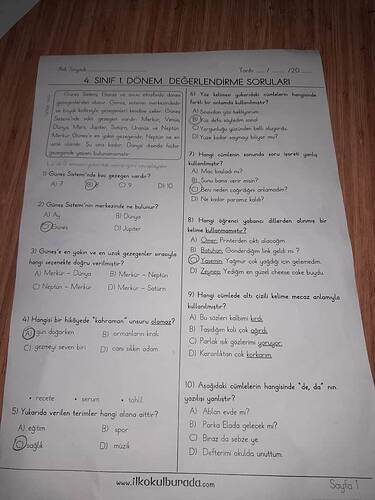 Ad Soyad:
Tarih: ..... / ..... /20.....
4. SINIF 1. DÖNEM DEĞERLENDİRME SORULARI
Güneş Sistemi, Güneş ve onun etrafında dönen
gezegenlerden oluşur. Güneş, sistemin merkezindedir
ve büyük kütlesiyle gezegenleri kendine çeker. Güneş
Sistemi'nde sekiz gezegen vardır: Merkür, Venüs,
Dünya, Mars, Jüpiter, Satürn, Uranüs ve Neptün.
Merkür Güneş'e en yakın gezegendir, Neptün ise en
uzak olanıdır. Şu ana kadar Dünya dışında hiçbir
gezegende yaşam bulunamamıştır.
1) Güneş Sistemi'nde kaç gezegen vardır?
A) 7
B) 8
C) 9
D) 10
2) Güneş Sistemi'nin merkezinde ne bulunur?
A) Ay
B) Dünya
C) Güneş
D) Jüpiter
3) Güneş'e en yakın ve en uzak gezegenler sırasıyla
hangi seçenekte doğru verilmiştir?
A) Merkür – Dünya
B) Merkür – Neptün
C) Neptün – Merkür
D) Merkür – Satürn
4) Hangisi bir hikâyede "kahraman" unsuru olamaz?
A) gün doğarken
B) ormanların kralı
C) gezmeyi seven biri
D) canı sıkkın adam
• reçete
• serum
• tahlil
5) Yukarıda verilen terimler hangi alana aittir?
A) eğitim
B) spor
C) sağlık
D) müzik
6) Yüz kelimesi yukarıdaki cümlelerin hangisinde
farklı bir anlamda kullanılmıştır?
B) Yüz defa söyledim sana!
C) Yorgunluğu yüzünden belli oluyordu.
D) Yüze kadar saymayı biliyor mu?
7) Hangi cümlenin sonunda soru işareti yanlış
kullanılmıştır?
A) Maç başladı mı?
B) Şunu bana verir misin?
C) Beni neden çağırdığını anlamadım?
D) Ne kadar paramız kaldı?
8) Hangi öğrenci yabancı dillerden alınma bir
kelime kullanmamıştır?
A) Ömer: Printerden çıktı alacağım
B) Batuhan: Gönderdiğim link geldi mi ?
C) Yasemin: Yağmur çok yağdığı için gelemedim.
D) Zeynep: Yediğim en güzel cheese cake buydu.
9) Hangi cümlede altı çizili kelime mecaz anlamıyla
kullanılmıştır?
A) Bu sözleri kalbimi kırdı.
B) Taşıdığım koli çok ağırdı.
C) Parlak ışık gözlerimi yoruyor.
D) Karanlıktan çok korkarım.
10) Aşağıdaki cümlelerin hangisinde "de, da" nın
yazılışı yanlıştır?
A) Ablan evde mi?
B) Parka Elada gelecek mi?
C) Biraz da sebze ye.
D) Defterimi okulda unuttum.
www.ilkokulburada.com
Sayfa 1